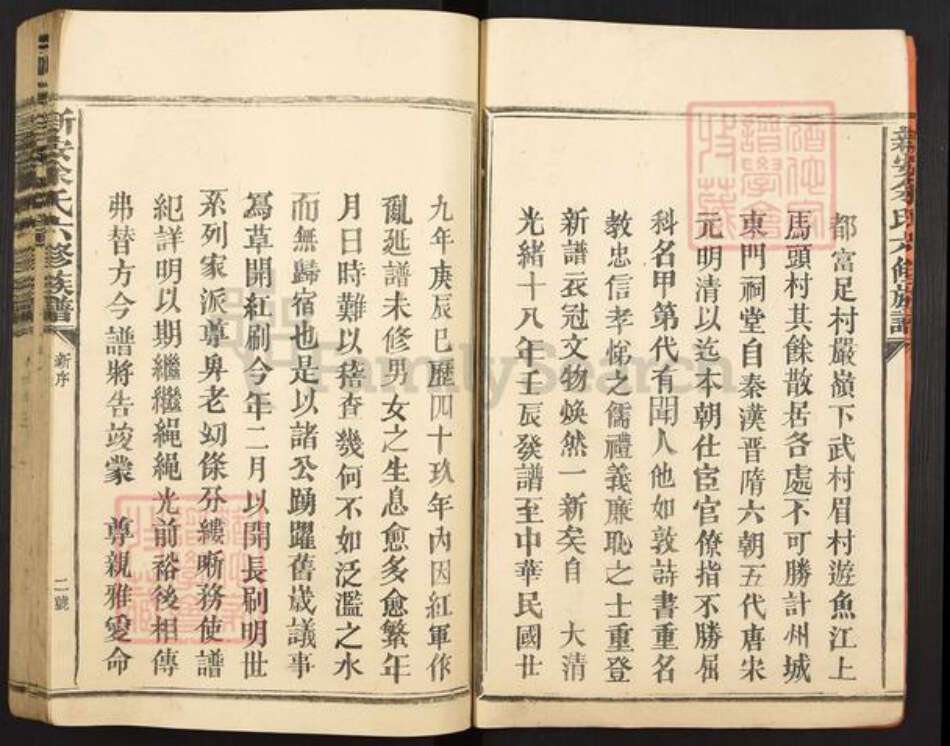 新安余氏六修族譜
都富足村嚴嶺下武村眉村遊魚江上
馬頭村其餘散居各處不可勝計州城
東門祠堂自秦漢晉隋六朝五代唐宋
元明清以迄本朝仕宦官僚指不勝屈
科名甲第代有聞人他如敦詩書重名
教忠信孝悌之儒禮義廉恥之士重登
新譜衣冠文物煥然一新矣自 大清
光緒十八年壬辰發譜至中華民國廿
九年庚辰巳歷四十玖年內因紅軍作
亂延譜未修男女之生息愈多愈繁年
月日時難以稽查幾何不如泛濫之水
而無歸宿也是以諸公踴躍舊歲議事
爲草開紅刷今年二月以開長刷明世
系列家派尊卑老幼條分縷晰務使譜
紀詳明以期繼繼繩繩光前裕後相傳
弗替方今譜將告竣蒙 尊親雅愛命
新安余氏六修族譜
新序
二號
FamilySearch